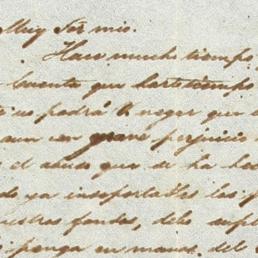 Muy Sor mio.
Hace mucho tiempo,
cuenta que harto tiempo
no podrá V. negar que
aun en grave perjuicio
el abuso que se ha hec
do ya insoportables los p
estros fondos, debo supl
ponga en manos del